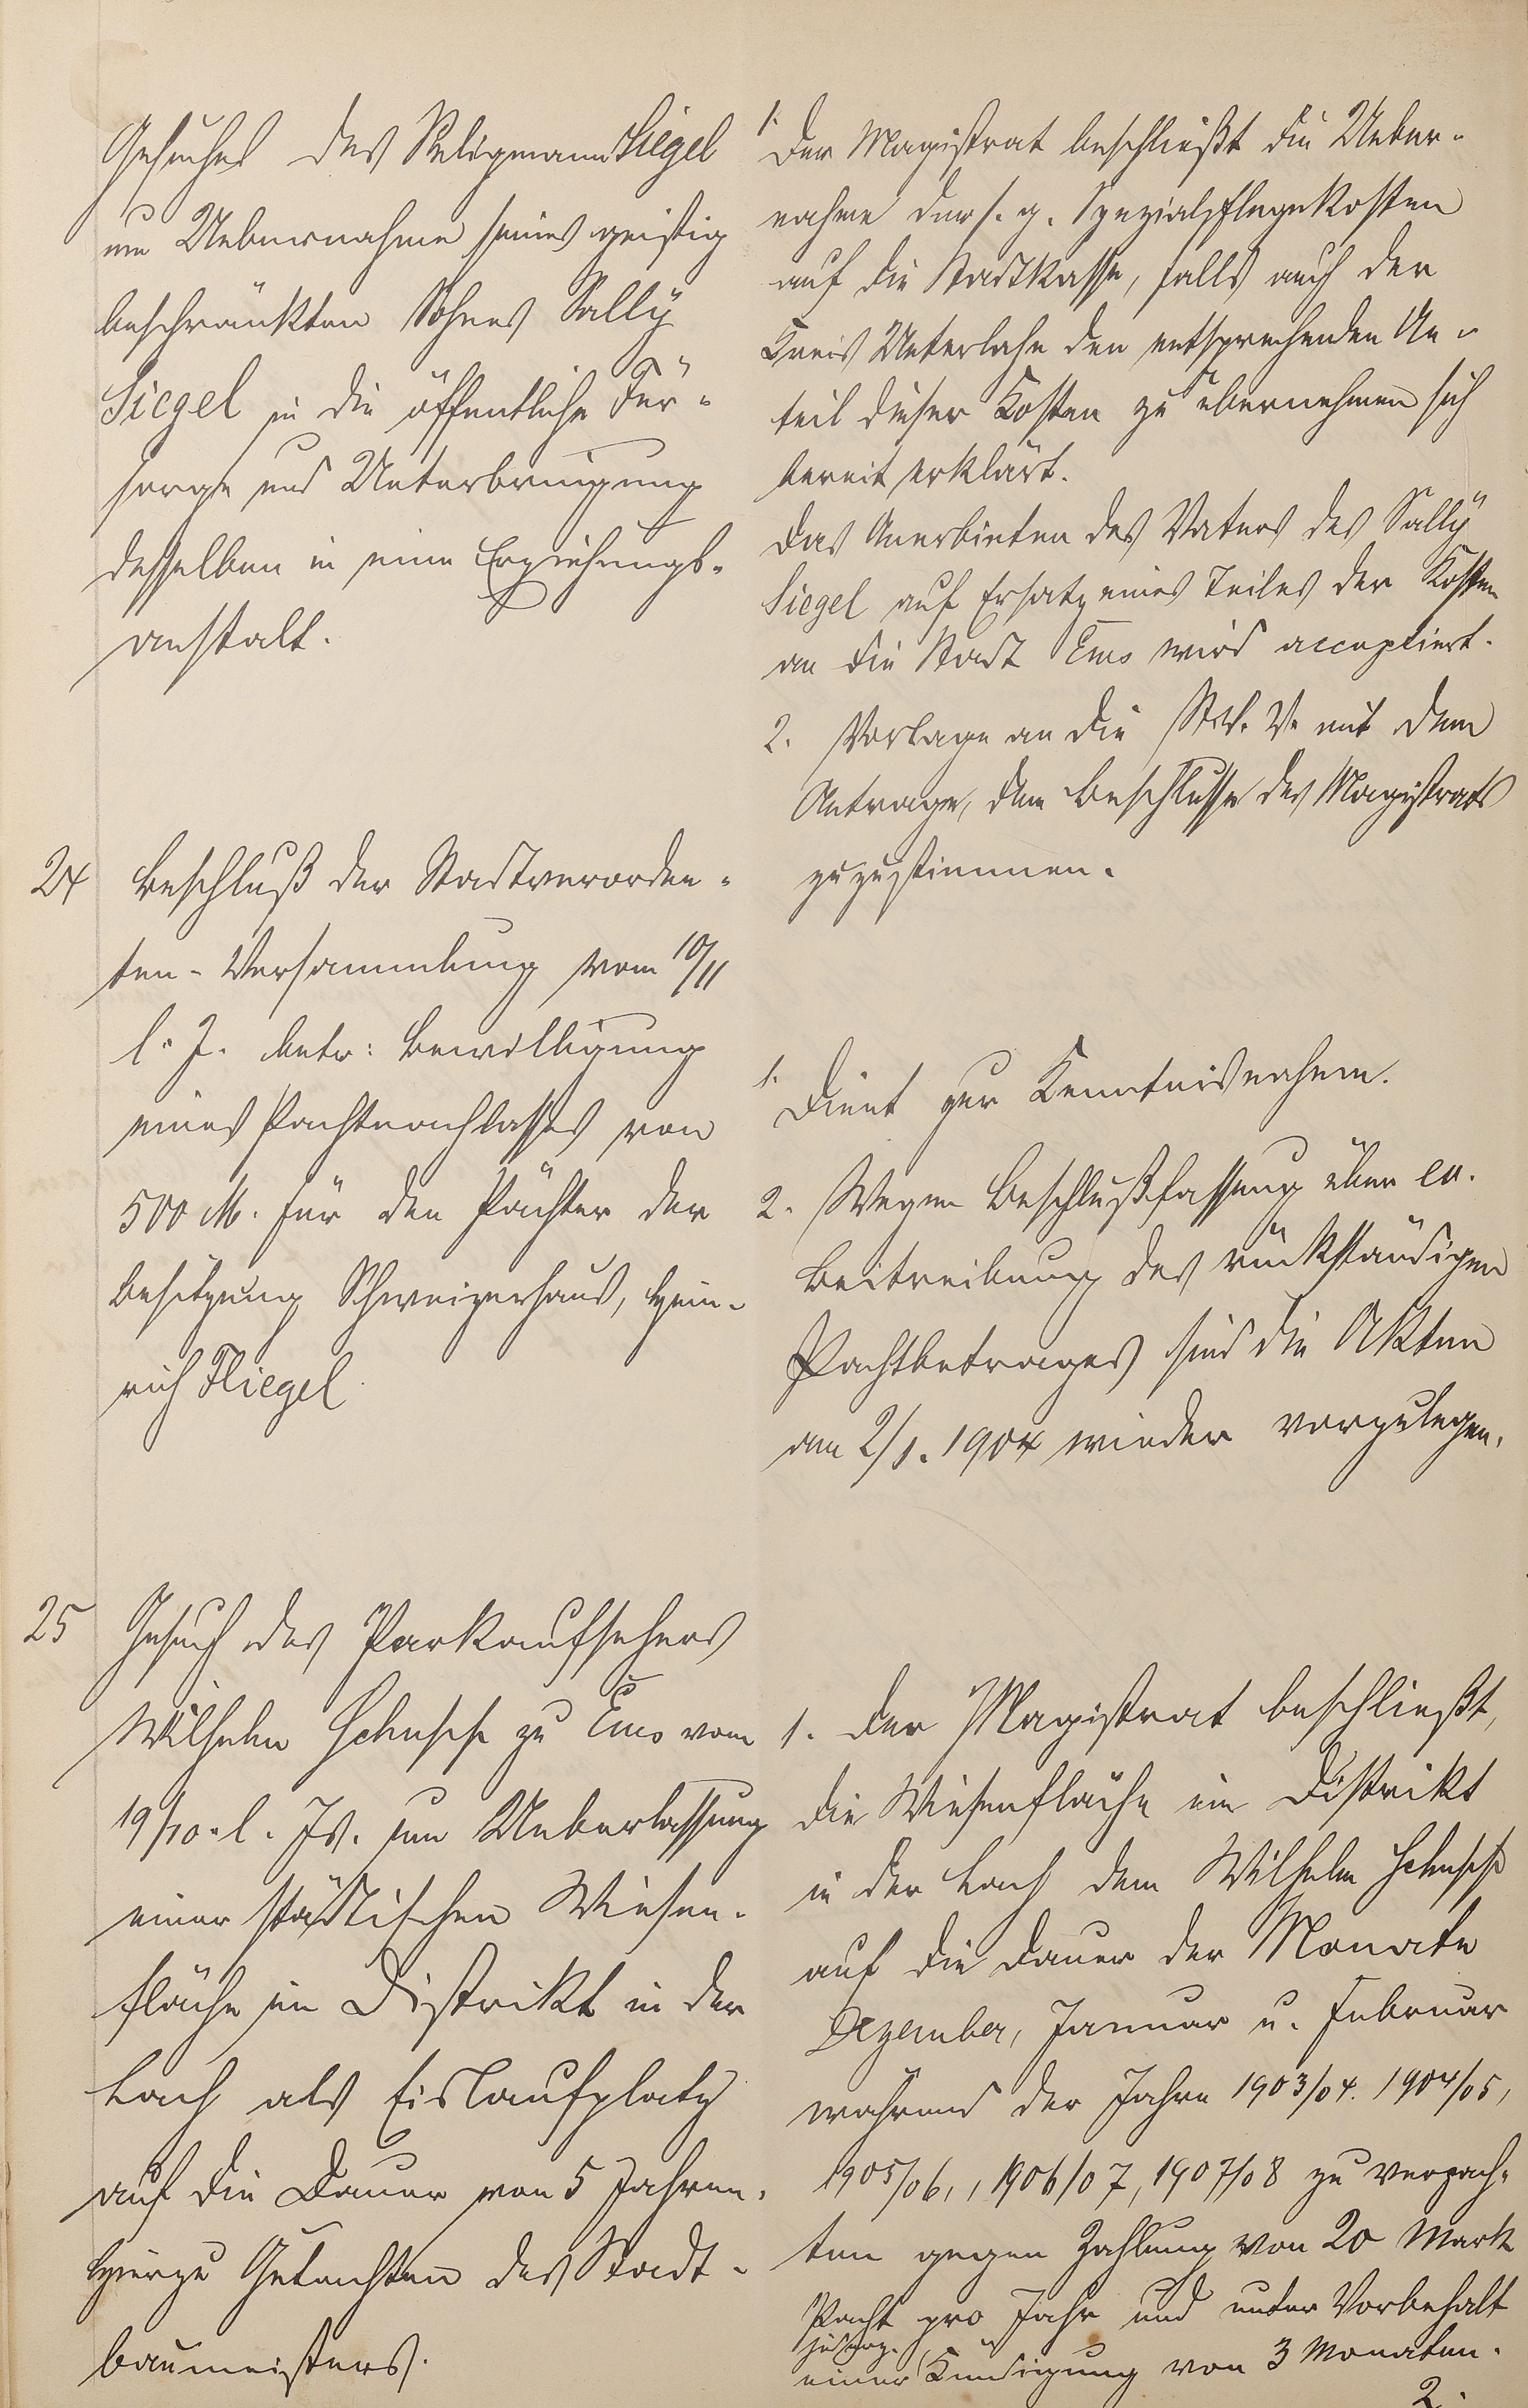 Gesuches des Seligmann Siegel
um Uebernahme seines geistig
beschränkten Sohnes Sally
Siegel in die öffentliche Für-
sorge und Unterbringung
desselben in eine Erziehungs-
anstalt.
1.
Der Magistrat beschließt die Ueber-
nahme der s. g. Spezialpflegekosten
auf die Stadtkasse, falls auch der
Kreis Unterlahn den entsprechenden An-
teil dieser Kosten zu übernehmen sich
bereit erklärt.
Das Anerbieten des Vaters des Sally
Siegel auf Ersatz eines Teiles der Kosten
an die Stadt Ems wird acceptiert.
2. Vorlage an die Stv. V. mit dem
Antrage, dem Beschlusse des Magistrats
zuzustimmen.
24 Beschluß der Stadtverordne-
ten-Versammlung vom 10/11
l. J. betr: Bewilligung
eines Pachtnachlasses von
500 M. für den Pächter der
Besitzung Schweizerhaus, Hein-
rich Fliegel
1. Dient zur Kenntnisnahme.
2. Wegen Beschlußfassung über ev.
Beitreibung des rückständigen
Pachtbetrages sind die Akten
am 2/1. 1904 wieder vorzulegen.
25 Gesuch des Parkaufsehers
Wilhelm zu Ems vom
19/10. l. Js. um Ueberlassung
einer städtischen Wiesen-
fläche im Distrikt in der
Lach als Eislaufplatz
auf die Dauer von 5 Jahren.
Hierzu Gutachten des Stadt-
baumeisters.
1. Der Magistrat beschließt,
die Wiesenfläche im Distrikt
in der Lach dem Wilhelm
auf die Dauer der Monate
Dezember, Januar u. Februar
während der Jahre 1903/04. 1904/05,
1905/06, , 1906/07, 1907/08 zu verpach-
ten gegen Zahlung von 20 Mark
Pacht pro Jahr und unter Vorbehalt
einer Kündigung von 3 Monaten.
2.